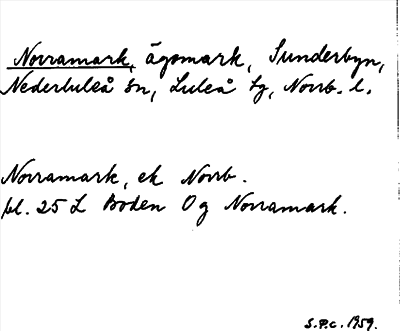 Norramark, ägomark, Sunderbyn,
Nederluleå sn, Luleå tg, Norrb. l.
Norramark, ek Norrb.
bl. 25 L Boden Og Norramark.
S.P.c. 1959.